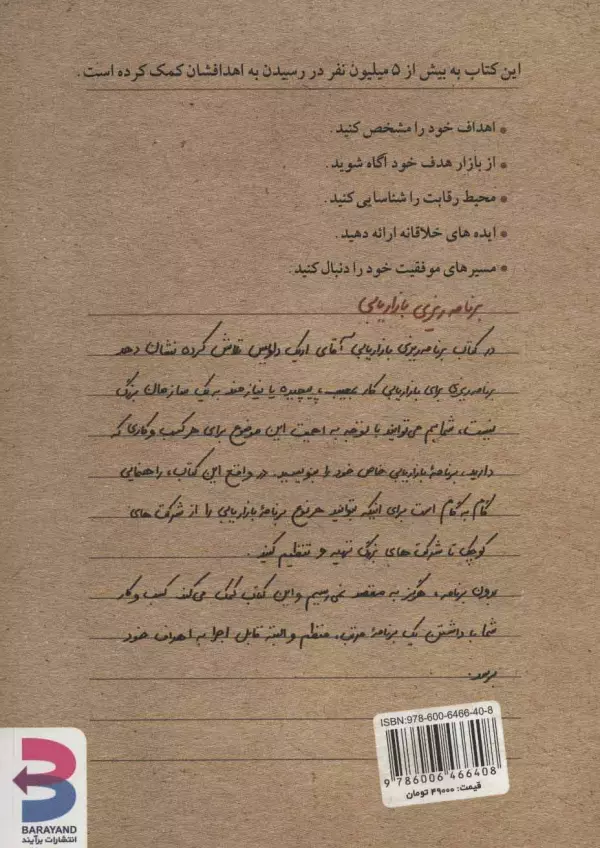 این کتاب به بیش از ۵ میلیون نفر در رسیدن به اهدافشان کمک کرده است.
• اهداف خود را مشخص کنید.
• از بازار هدف خود آگاه شوید.
• محیط رقابت را شناسایی کنید.
• ایده های خلاقانه ارائه دهید.
• مسیرهای موفقیت خود را دنبال کنید.
برنامه ریزی بازاریابی
در کتاب برنامه‌ریزی بازاریابی آقای اریک دلویس تلاش کرده نشان دهد
برنامه‌ریزی برای بازاریابی کار عجیب، پیچیده یا نیازمند به یک سازمان بزرگ
نیست، شما هم می‌توانید با توجه به اهمیت این موضوع برای هر کسب و کاری که
دارید، برنامهٔ بازاریابی خاص خود را بنویسید. در واقع این کتاب، راهنمایی
گام به گام است برای اینکه بتوانید هر نوع برنامهٔ بازاریابی را از شرکت های
کوچک تا شرکت های بزرگ تهیه و تنظیم کنید.
بدون برنامه، هرگز به مقصد نمی‌رسیم و این کتاب کمک می‌کند کسب و کار
شما با داشتن یک برنامهٔ مرتب، منظم و البته قابل اجرا به اهداف خود
برسد.
ISBN:978-600-6466-40-8
9 786006 466408
قیمت: ۴۹۰۰۰ تومان
BARAYAND
انتشارات برآیند